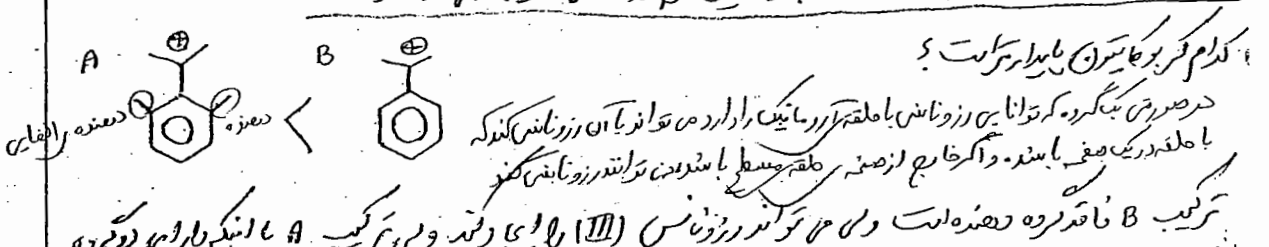 کدام کربوکاتیون پایدارتر است؟
A
B
⊕
⊕
دهنده القایی
دهنده
<
در صورتی یک گروه که توانایی رزونانس با حلقه آروماتیک را دارد می تواند با آن رزونانس کند که
با حلقه در یک صفحه باشد. و اگر خارج از صفحه ی حلقه ی مسطح باشد، نمی تواند رزونانس کند
ترکیب B فاقد گروه دهنده است ولی می تواند رزونانس (III) را ولی ترکیب A با اینکه دارای دو گروه